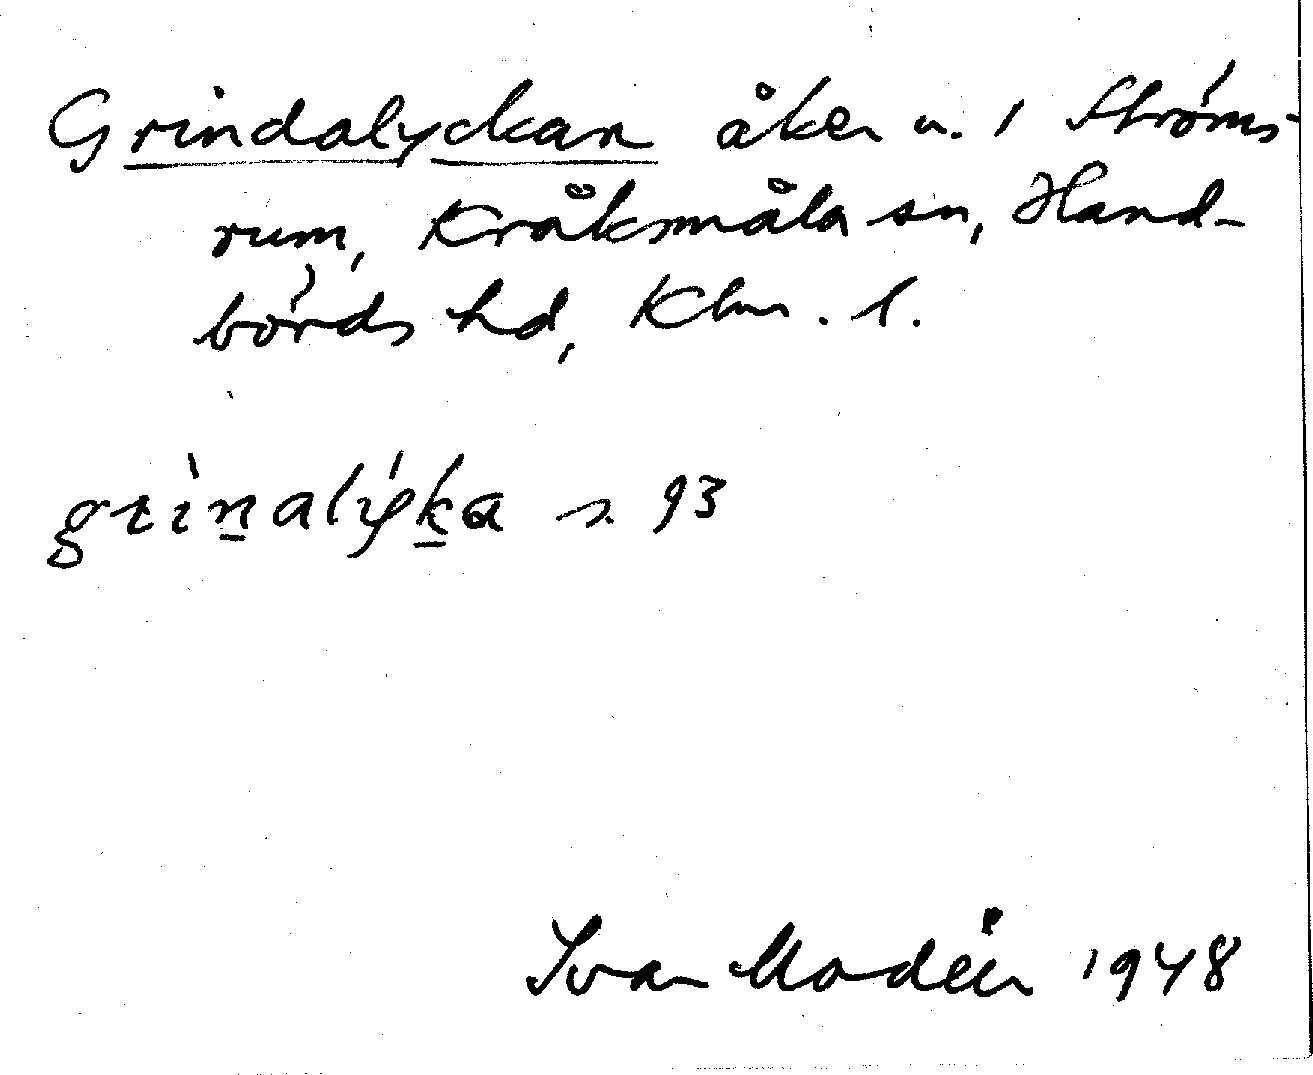 Grindalyckan åker n. 1 Ströms-
rum, Kråksmåla sn, Hand-
börds hd, Klm. l.
grìnalýka s. 93
Ivan Modéer 1948